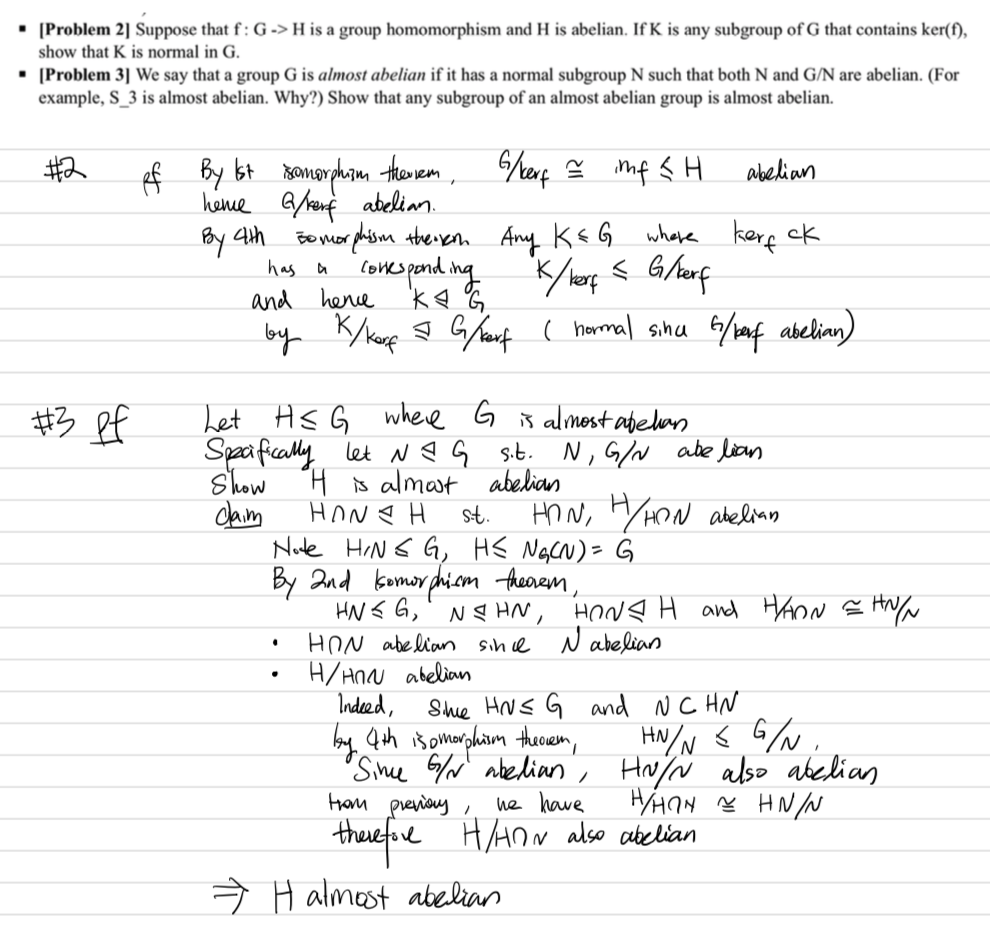 ▪ [Problem 2] Suppose that f : G -> H is a group homomorphism and H is abelian. If K is any subgroup of G that contains ker(f),
show that K is normal in G.
▪ [Problem 3] We say that a group G is almost abelian if it has a normal subgroup N such that both N and G/N are abelian. (For
example, S_3 is almost abelian. Why?) Show that any subgroup of an almost abelian group is almost abelian.
#2 pf By 1st isomorphism theorem, G/kerf ≅ imf ≤ H abelian
hence G/kerf abelian.
By 4th isomorphism theorem Any K ≤ G where kerf ⊂ K
has a corresponding K/kerf ≤ G/kerf
and hence K ⊴ G
by K/kerf ⊴ G/kerf ( normal since G/kerf abelian)
#3 pf Let H ≤ G where G is almost abelian
Specifically let N ⊴ G s.t. N, G/N abelian
Show H is almost abelian
claim H∩N ⊴ H st. H∩N, H/H∩N abelian
Note H,N ≤ G, H ≤ N_G(N) = G
By 2nd isomorphism theorem,
HN ≤ G, N ⊴ HN, H∩N ⊴ H and H/H∩N ≅ HN/N
• H∩N abelian since N abelian
• H/H∩N abelian
Indeed, Since HN ≤ G and N ⊂ HN
by 4th isomorphism theorem, HN/N ≤ G/N,
Since G/N abelian, HN/N also abelian
from previous, we have H/H∩N ≅ HN/N
therefore H/H∩N also abelian
⇒ H almost abelian